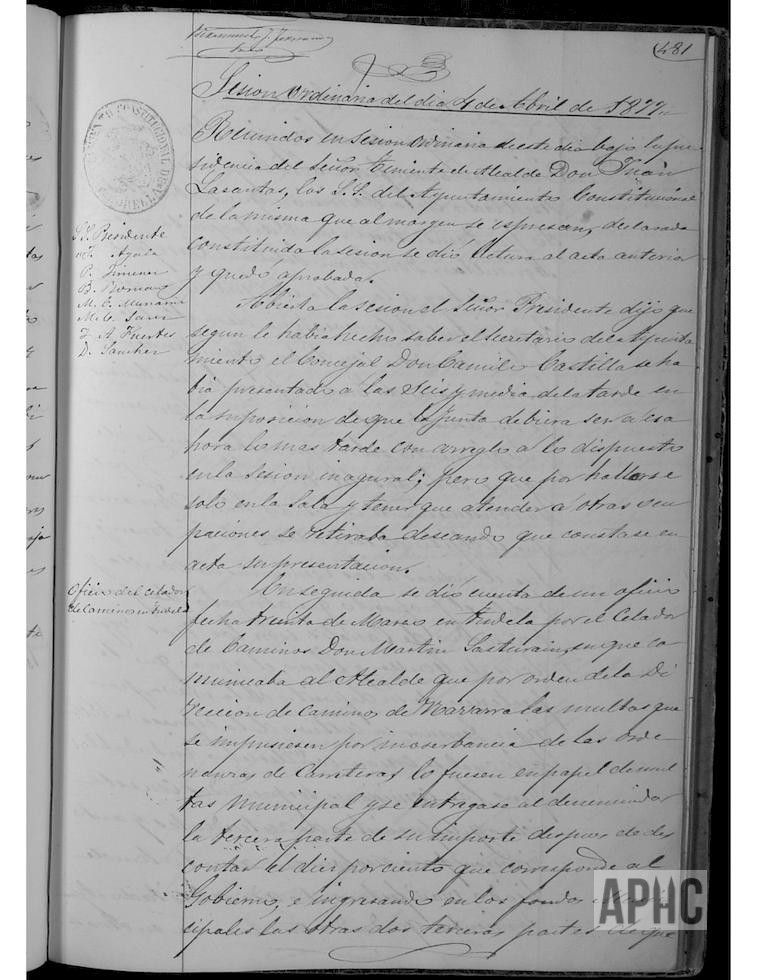 481
Sesion ordinaria del dia 4 de Abril de 1877
Reunidos en sesion ordinaria de este dia bajo la pre
sidencia del Señor Teniente de Alcalde Don Juan
Lasantas, los S.S. del Ayuntamiento Constitucional
de la misma que al margen se espresan, declarada
constituida la sesion se dió lectura al acta anterior
y quedó aprobada.
S.S. Presidente
Ayala
P. Jimenez
B. Romano
M. C.
M. C. Sanz
F. A. Fuertes
D. Sanchez
Abierta la sesion el Señor Presidente dijo que
segun le habia hecho saber el secretario del Ayunta
miento el Concejal Don Camilo Castilla se ha
bia presentado a las seis y media de la tarde en
la suposicion de que la Junta debiera ser a esa
hora lo mas tarde con arreglo a lo dispuesto
en la sesion inagural; pero que por hallarse
solo en la sala y tener que atender á otras ocu
paciones se retiraba deseando que constase en
acta su presentacion.
Oficio del Celador
de Caminos en Tudela
Enseguida se dió cuenta de un oficio
fecha treinta de Marzo en Tudela por el Celador
de Caminos Don Martin Sasturain, en que co
municaba al Alcalde que por orden de la Di
reccion de Caminos de Navarra las multas que
se impusiesen por inoserbancia de las orde
nanzas de Carreteras lo fuesen en papel de mul
tas municipal y se entregase al denunciador
la tercera parte de su importe despues de des
contar el diez por ciento que corresponde al
Gobierno, e ingresando en los fondos Muni
cipales las otras dos terceras partes de que
APHC